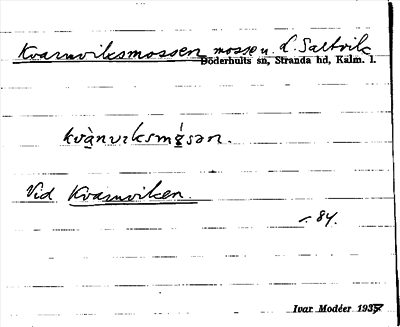 Kvarnviksmossen mosse u. L. Saltvik
Döderhults sn, Stranda hd, Kalm. l.
kvànvıksmósən.
Vid Kvarnviken.
84.
Ivar Modéer 1937